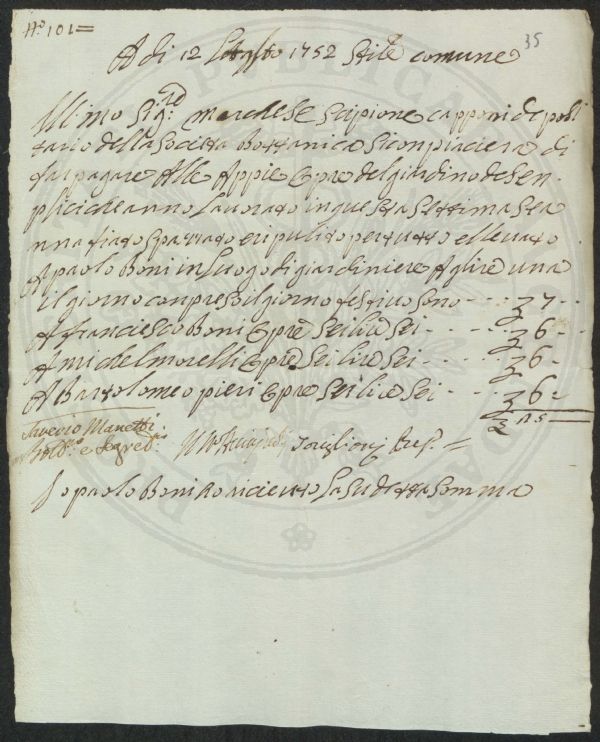 N.o 101=
35
A di 12 1752 Stile comune
Ill.mo Sig.re marchese Scipione capponi depoſi
tario della Società Bottanica Si conpiacierà di
far pagare Alle Appie Opre del giardino de Sen
plici che anno Lavorato in questa Settimana
anna fiato Spazzato e ripulito per tutto e llevato
A paolo Boni in Luogo di giardiniere A lire una
il giorno conpreso il giorno festivo Sono - - - £ 7 - -
A franciesco Boni Opre Sei lire Sei - - - - £ 6 -
A michel morelli Opre Sei lire Sei - - - £ 6 -
A Bartolomeo pieri Opre Sei lire Sei - - - £ 6 -
£ 25
Saverio Manetti
Sott.o e Segret.o Torriglioni
Io paolo Boni ho ricieuto La Sudetta Somma